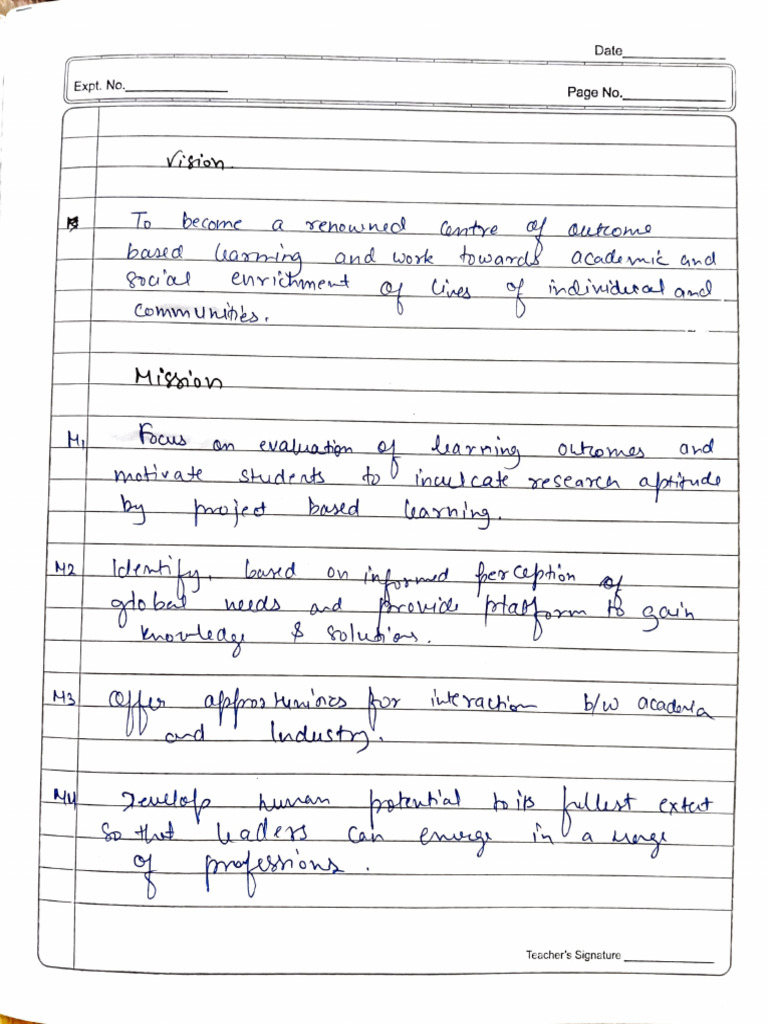 Date
Expt. No.
Page No.
Vision
To become a renowned centre of outcome
based learning and work towards academic and
social enrichment of lives of individual and
communities.
Mission
M1 Focus on evaluation of learning outcomes and
motivate students to inculcate research aptitude
by project based learning.
M2 Identify, based on informed perception of
global needs and provide platform to gain
knowledge & solutions.
M3 Offer for interaction b/w academia
and Industry.
M4 Develop human potential to its fullest extent
So that leaders can emerge in a
of professions.
Teacher's Signature